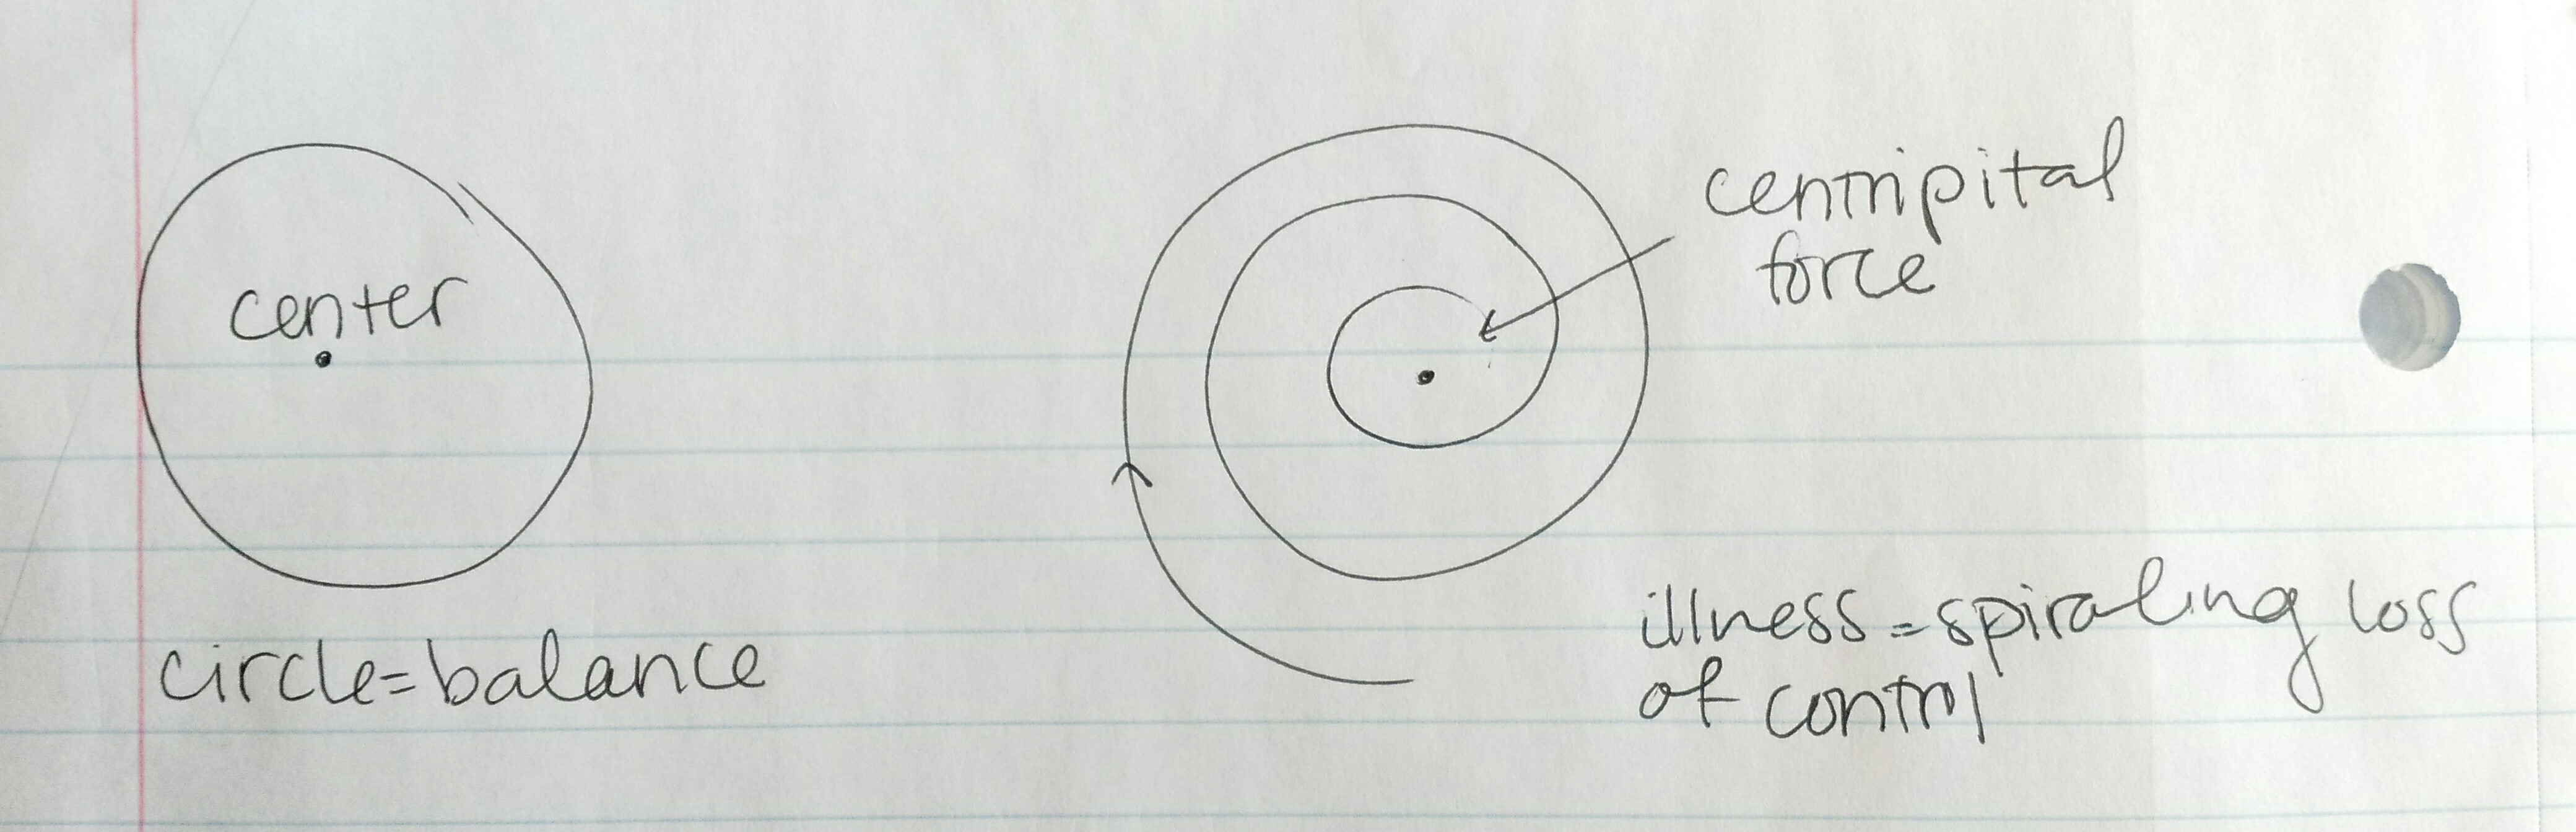 center
circle=balance
centripital
force
illness=spiraling loss
of control